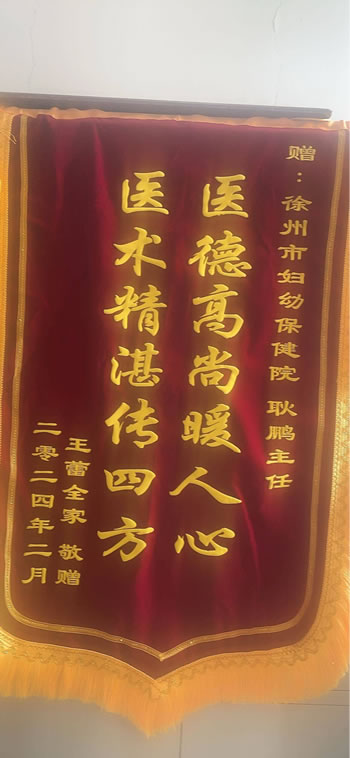 赠：徐州市妇幼保健院 耿鹏主任
医德高尚暖人心
医术精湛传四方
王蕾全家 敬赠
二零二四年二月